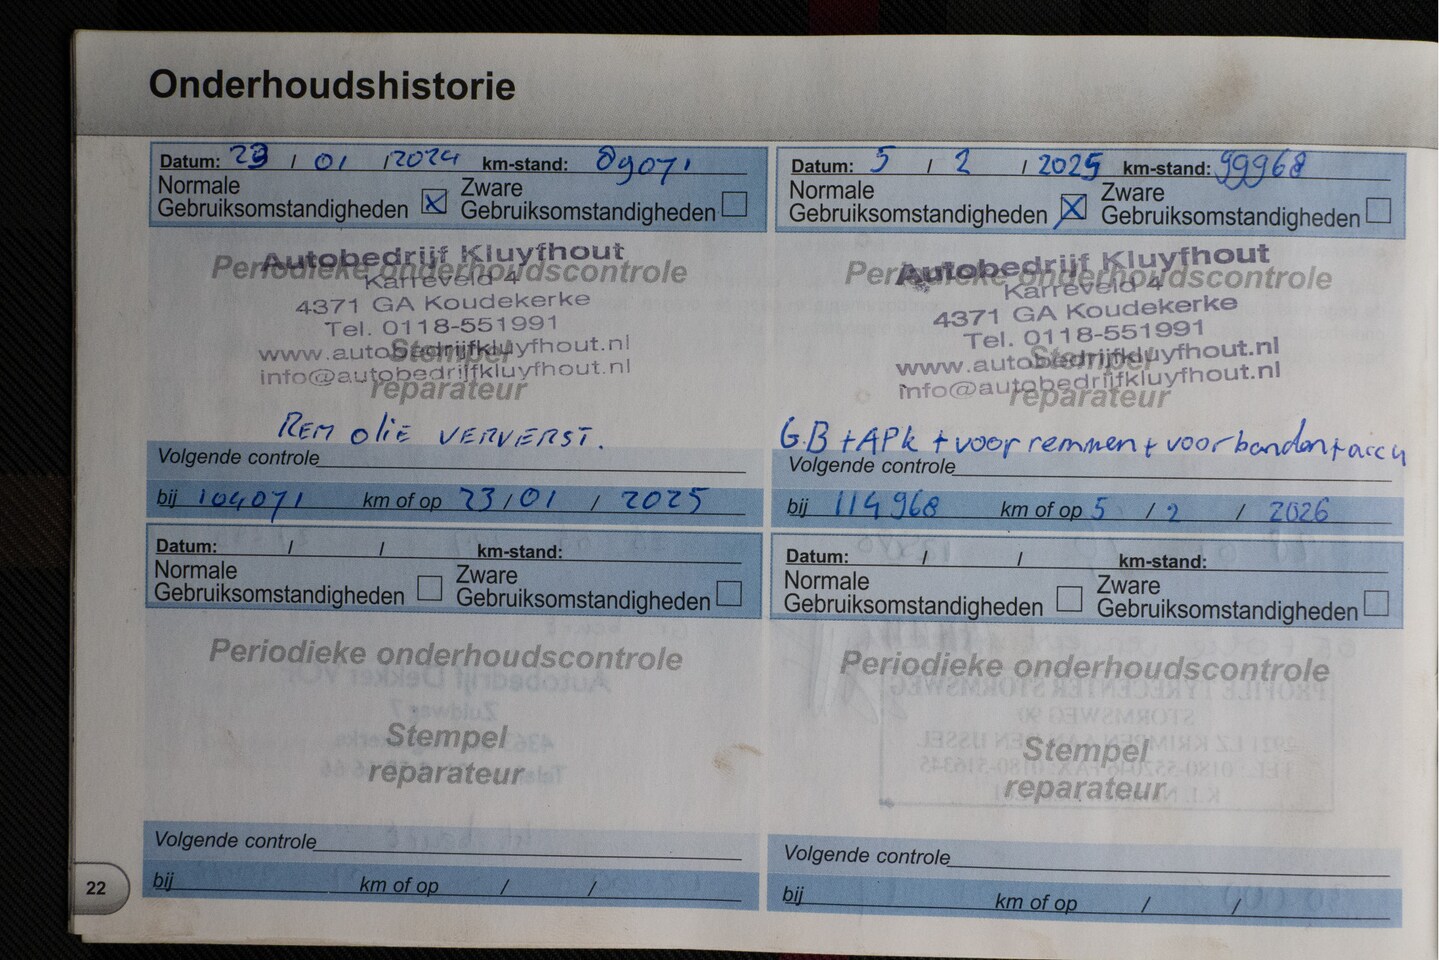 Onderhoudshistorie
Datum: 23 / 01 / 2024 km-stand: 89071
Normale Gebruiksomstandigheden X Zware Gebruiksomstandigheden
Periodieke onderhoudscontrole
Autobedrijf Kluyfhout
Karreveld 4
4371 GA Koudekerke
Tel. 0118-551991
www.autobedrijfkluyfhout.nl
info@autobedrijfkluyfhout.nl
Stempel
reparateur
REM OLIE VERVERST.
Volgende controle
bij 104071 km of op 23 / 01 / 2025
Datum: 5 / 2 / 2025 km-stand: 99968
Normale Gebruiksomstandigheden X Zware Gebruiksomstandigheden
Periodieke onderhoudscontrole
Autobedrijf Kluyfhout
Karreveld 4
4371 GA Koudekerke
Tel. 0118-551991
www.autobedrijfkluyfhout.nl
info@autobedrijfkluyfhout.nl
Stempel
reparateur
G.B + APK + voor remmen + voorbanden + accu
Volgende controle
bij 114968 km of op 5 / 2 / 2026
Datum: / / km-stand:
Normale Gebruiksomstandigheden Zware Gebruiksomstandigheden
Periodieke onderhoudscontrole
Stempel
reparateur
Volgende controle
bij km of op / /
Datum: / / km-stand:
Normale Gebruiksomstandigheden Zware Gebruiksomstandigheden
Periodieke onderhoudscontrole
Stempel
reparateur
Volgende controle
bij km of op / /
22